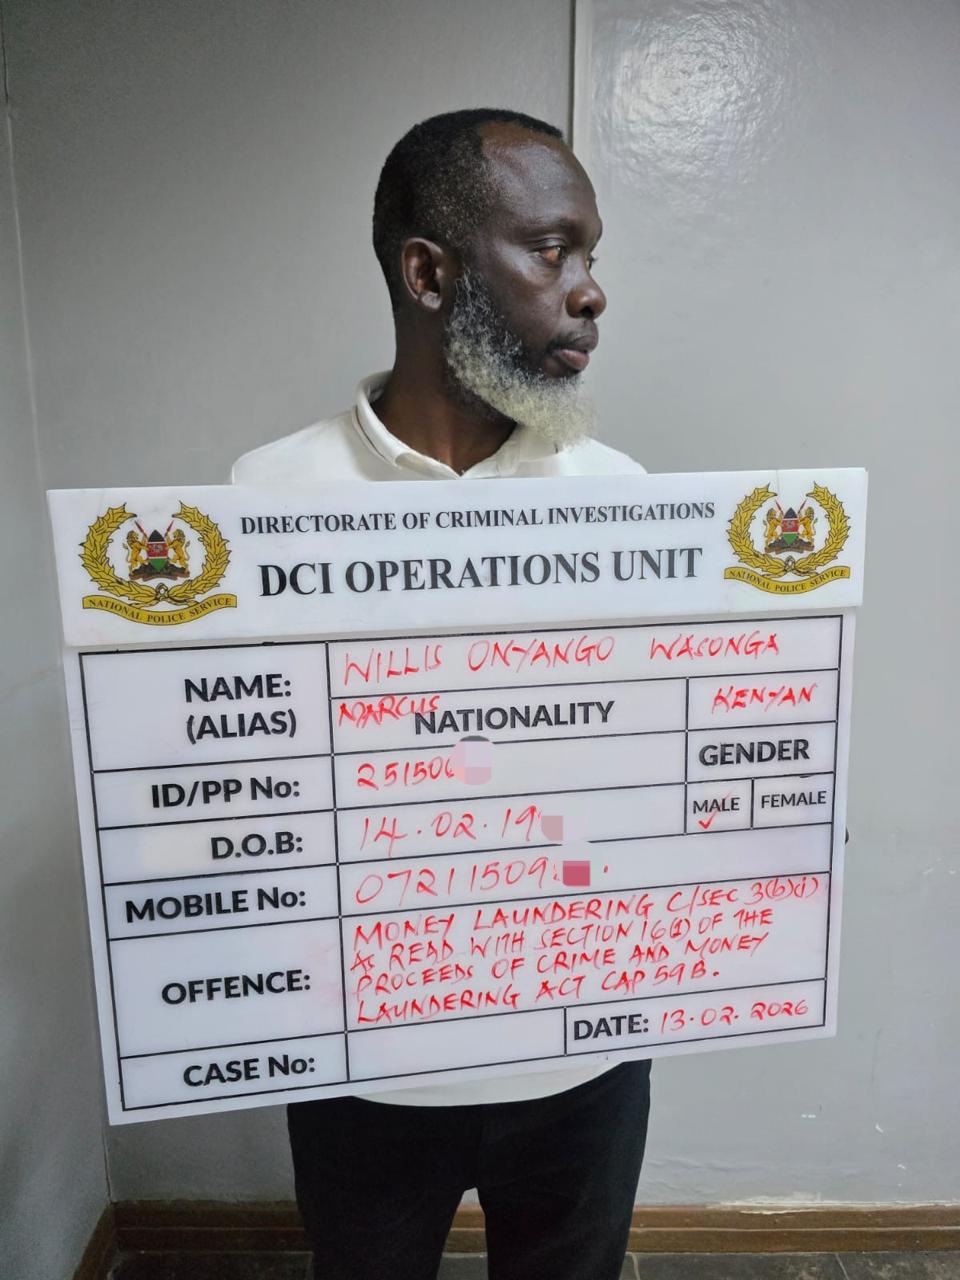 DIRECTORATE OF CRIMINAL INVESTIGATIONS
DCI OPERATIONS UNIT
NATIONAL POLICE SERVICE
NATIONAL POLICE SERVICE
NAME: WILLIS ONYANGO WASONGA
(ALIAS) MARCUS
NATIONALITY KENYAN
ID/PP No: 251506
GENDER
MALE ✓ FEMALE
D.O.B: 14.02.19
MOBILE No: 07211509
OFFENCE: MONEY LAUNDERING C/SEC 3(b)(i)
AS READ WITH SECTION 16(1) OF THE
PROCEEDS OF CRIME AND MONEY
LAUNDERING ACT CAP 59B.
CASE No:
DATE: 13.02.2026